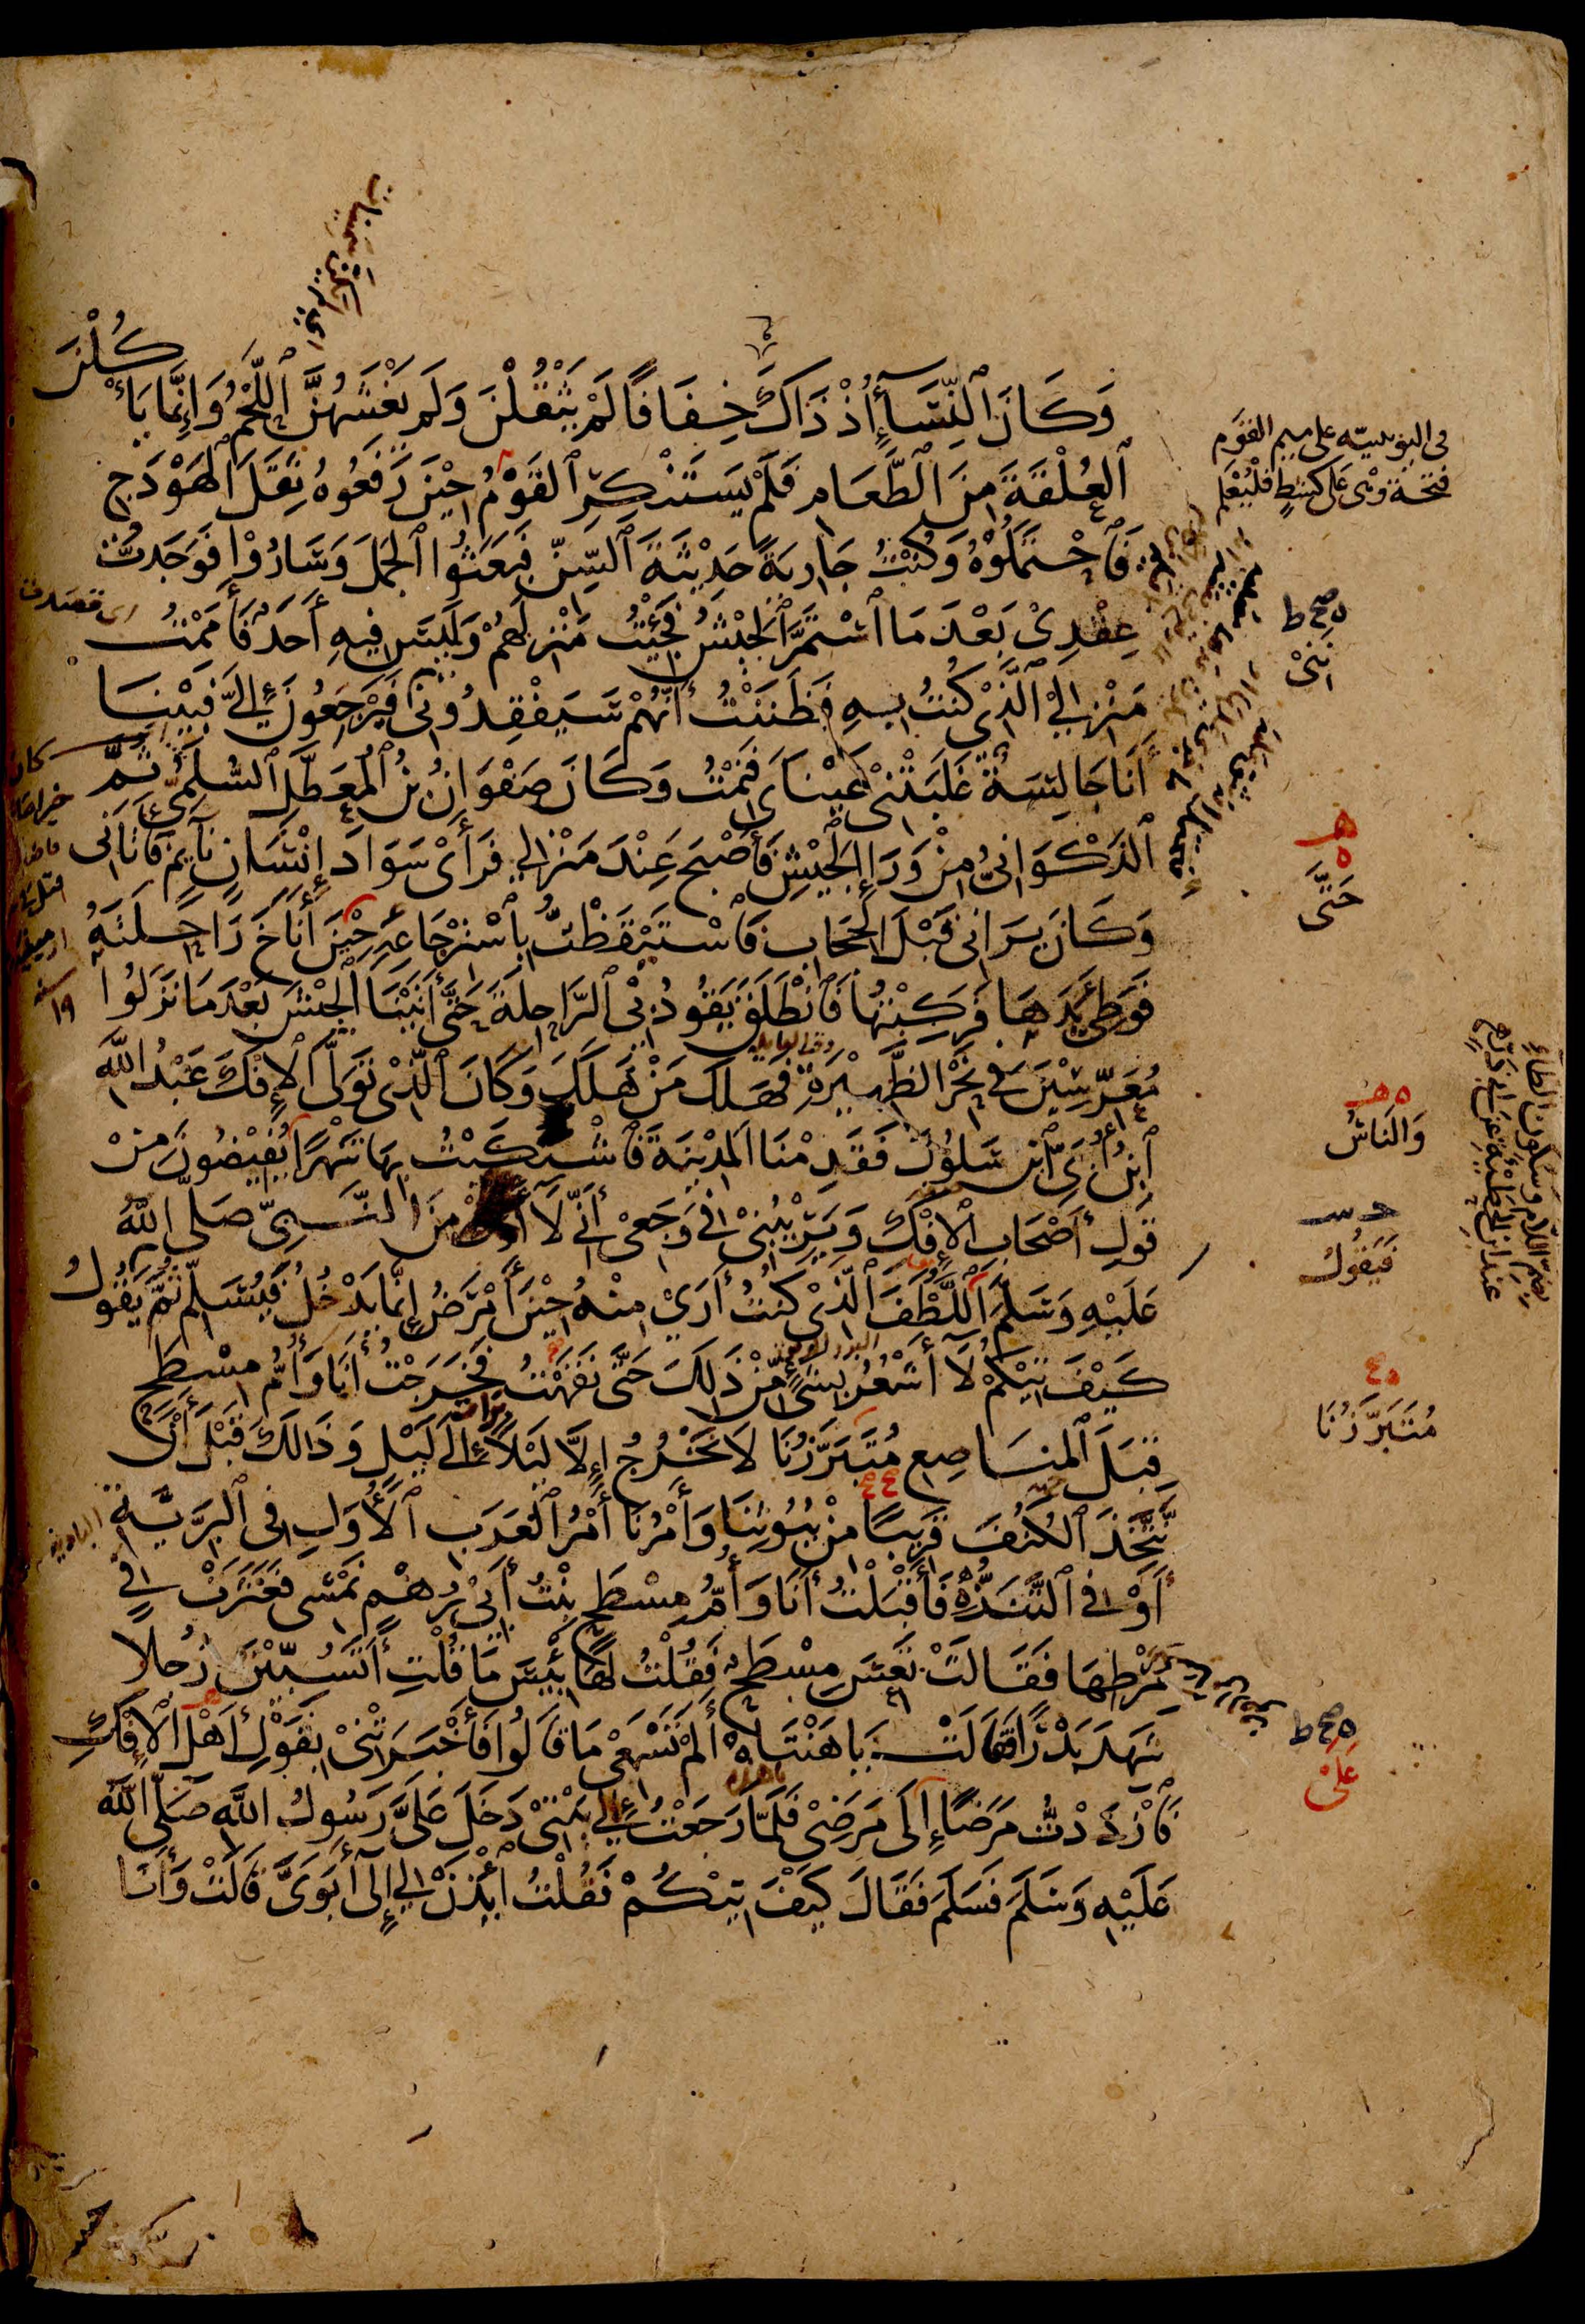 وَكَانَ ٱلنِّسَآءُ إِذْ ذَاكَ خِفَافًا لَمْ يَثْقُلْنَ وَلَمْ يَغْشَهُنَّ ٱللَّحْمُ وَإِنَّمَا يَأْكُلْنَ
ٱلْعُلْقَةَ مِنَ ٱلطَّعَامِ فَلَمْ يَسْتَنْكِرِ ٱلْقَوْمُ حِيْنَ رَفَعُوهُ ثِقَلَ ٱلْهَوْدَجِ
فَٱحْتَمَلُوْهُ وَكُنْتُ جَارِيَةً حَدِيْثَةَ ٱلسِّنِّ فَبَعَثُوا ٱلْجَمَلَ وَسَارُوْا فَوَجَدْتُ
عِقْدِىْ بَعْدَ مَا ٱسْتَمَرَّ ٱلْجَيْشُ فَجِئْتُ مَنْزِلَهُمْ وَلَيْسَ فِيهِ أَحَدٌ فَأَمَمْتُ
مَنْزِلِي ٱلَّذِىْ كُنْتُ بِهِ فَظَنَنْتُ أَنَّهُمْ سَيَفْقِدُونِى فَيَرْجِعُونَ إِلَيَّ فَبَيْنَا
أَنَا جَالِسَةٌ غَلَبَتْنِىْ عَيْنَاىَ فَنِمْتُ وَكَانَ صَفْوَانُ بْنُ ٱلْمُعَطَّلِ ٱلسُّلَمِىُّ ثُمَّ
ٱلذَّكْوَانِىُّ مِنْ وَرَاءِ ٱلْجَيْشِ فَأَصْبَحَ عِنْدَ مَنْزِلِي فَرَأَىْ سَوَادَ إِنْسَانٍ نَآئِمٍ فَأَتَانِى
وَكَانَ يَرَانِى قَبْلَ ٱلْحِجَابِ فَٱسْتَيْقَظْتُ بِٱسْتِرْجَاعِهِ حِيْنَ أَنَاخَ رَاحِلَتَهُ
فَوَطِئَ يَدَهَا فَرَكِبْتُهَا فَٱنْطَلَقَ يَقُودُ بِى ٱلرَّاحِلَةَ حَتَّى أَتَيْنَا ٱلْجَيْشَ بَعْدَ مَا نَزَلُوا
مُعَرِّسِيْنَ فِي نَحْرِ ٱلظَّهِيْرَةِ فَهَلَكَ مَنْ هَلَكَ وَكَانَ ٱلَّذِىْ تَوَلَّى ٱلْإِفْكَ عَبْدُ ٱللَّهِ
ٱبْنُ أُبَيِّ ٱبْنِ سَلُوْلَ فَقَدِمْنَا ٱلْمَدِيْنَةَ فَٱشْتَكَيْتُ بِهَا شَهْرًا يُفِيْضُونَ مِنْ
قَوْلِ أَصْحَابِ ٱلْإِفْكِ وَيَرِيْبُنِىْ فِي وَجَعِىْ أَنِّي لَا أَرَى مِنَ ٱلنَّبِيِّ صَلَّى ٱللَّهُ
عَلَيْهِ وَسَلَّمَ ٱللُّطْفَ ٱلَّذِىْ كُنْتُ أَرَىْ مِنْهُ حِيْنَ أَمْرَضُ إِنَّمَا يَدْخُلُ فَيُسَلِّمُ ثُمَّ يَقُولُ
كَيْفَ تِيْكُمْ لَآ أَشْعُرُ بِشَىْءٍ مِنْ ذَلِكَ حَتَّى نَقَهْتُ فَخَرَجْتُ أَنَا وَأُمُّ مِسْطَحٍ
قِبَلَ ٱلْمَنَاصِعِ مُتَبَرَّزُنَا لَا نَخْرُجُ إِلَّا لَيْلًا إِلَى لَيْلٍ وَذَالِكَ قَبْلَ أَنْ
نَتَّخِذَ ٱلْكُنُفَ قَرِيْبًا مِنْ بُيُوْتِنَا وَأَمْرُنَا أَمْرُ ٱلْعَرَبِ ٱلْأُوَلِ فِى ٱلْبَرِّيَّةِ
أَوْ فِي ٱلتَّنَزُّهِ فَأَقْبَلْتُ أَنَا وَأُمُّ مِسْطَحٍ بِنْتُ أَبِىْ رُهْمٍ نَمْشِى فَعَثَرَتْ فِي
مِرْطِهَا فَقَالَتْ تَعِسَ مِسْطَحٌ فَقُلْتُ لَهَا بِئْسَ مَا قُلْتِ أَتَسُبِّيْنَ رَجُلًا
شَهِدَ بَدْرًا فَقَالَتْ يَا هَنْتَاهْ أَلَمْ تَسْمَعِىْ مَا قَالُوا فَأَخْبَرَتْنِىْ بِقَوْلِ أَهْلِ ٱلْإِفْكِ
فَٱزْدَدْتُ مَرَضًا إِلَى مَرَضِىْ فَلَمَّا رَجَعْتُ إِلَي بَيْتِىْ دَخَلَ عَلَىَّ رَسُولُ ٱللَّهِ صَلَّى ٱللَّهُ
عَلَيْهِ وَسَلَّمَ فَسَلَّمَ فَقَالَ كَيْفَ تِيْكُمْ فَقُلْتُ ٱئْذَنْ لِي إِلَى أَبَوَىَّ قَالَتْ وَأَنَا
فى اليونينيه على ميم القوم
فتحة وهى على كشط فليعلم
ه صح ط
ننى
هـ
ه
حَتَّى
ه هـ
وَالنَاسُ
حـ سـ
فَيَقُولُ
مُتَبَرَّزُنَا
بضم اللام وسكون الطاء
ه صح ط
عَلَىْ
اى قصدت
كان
سنه
١٩